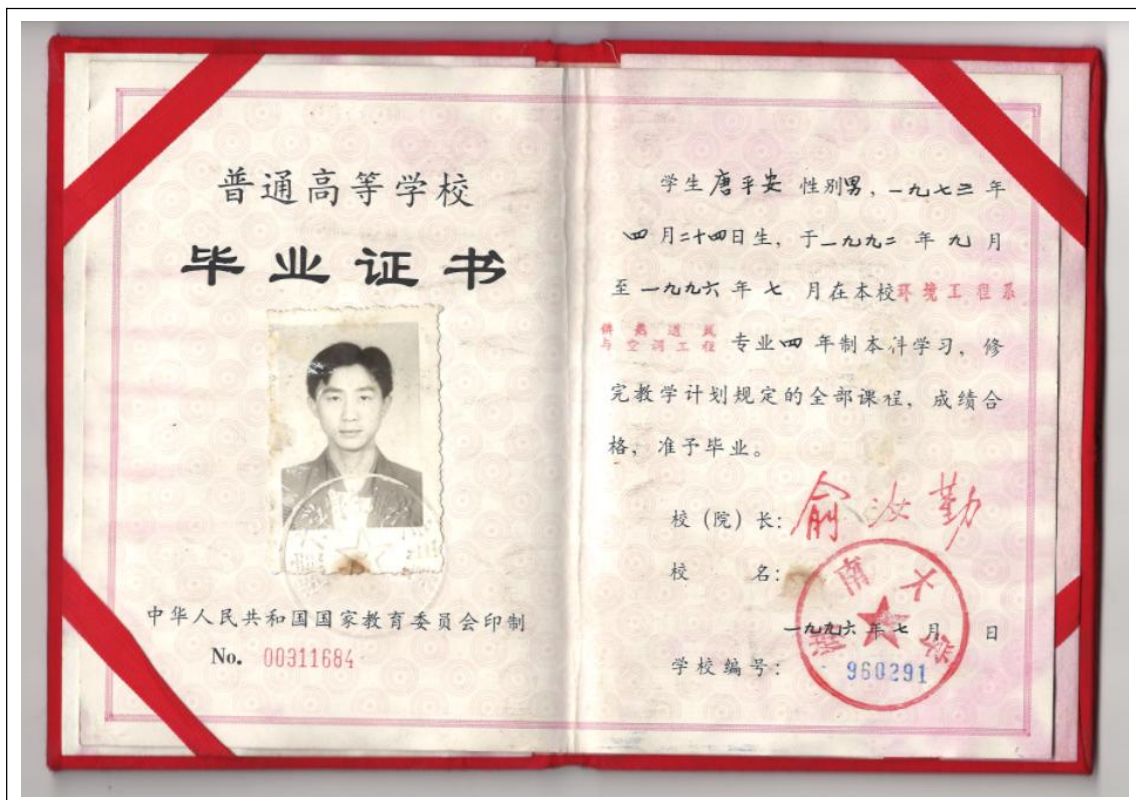 普通高等学校
毕业证书
中华人民共和国国家教育委员会印制
No. 00311684
学生唐平安 性别男，一九七三年
四月二十四日生，于一九九二年九月
至一九九六年七 月在本校环境工程系
供热通风
与空调工程 专业四 年制本科学习，修
完教学计划规定的全部课程，成绩合
格，准予毕业。
校（院）长：俞汝勤
校 名：
湖南大学
一九九六年七月 日
学校编号： 960291